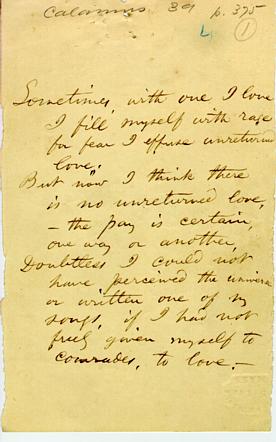 Calamus 39 p. 375
1
Sometimes, with one I love
I fill myself with rage
for fear I effuse unreturned
love.
But now I think there
is no unreturned love,
— the pay is certain,
one way or another,
Doubtless I could not
have perceived the universe
or written one of my
songs, if I had not
freely given myself to
comrades, to love.—